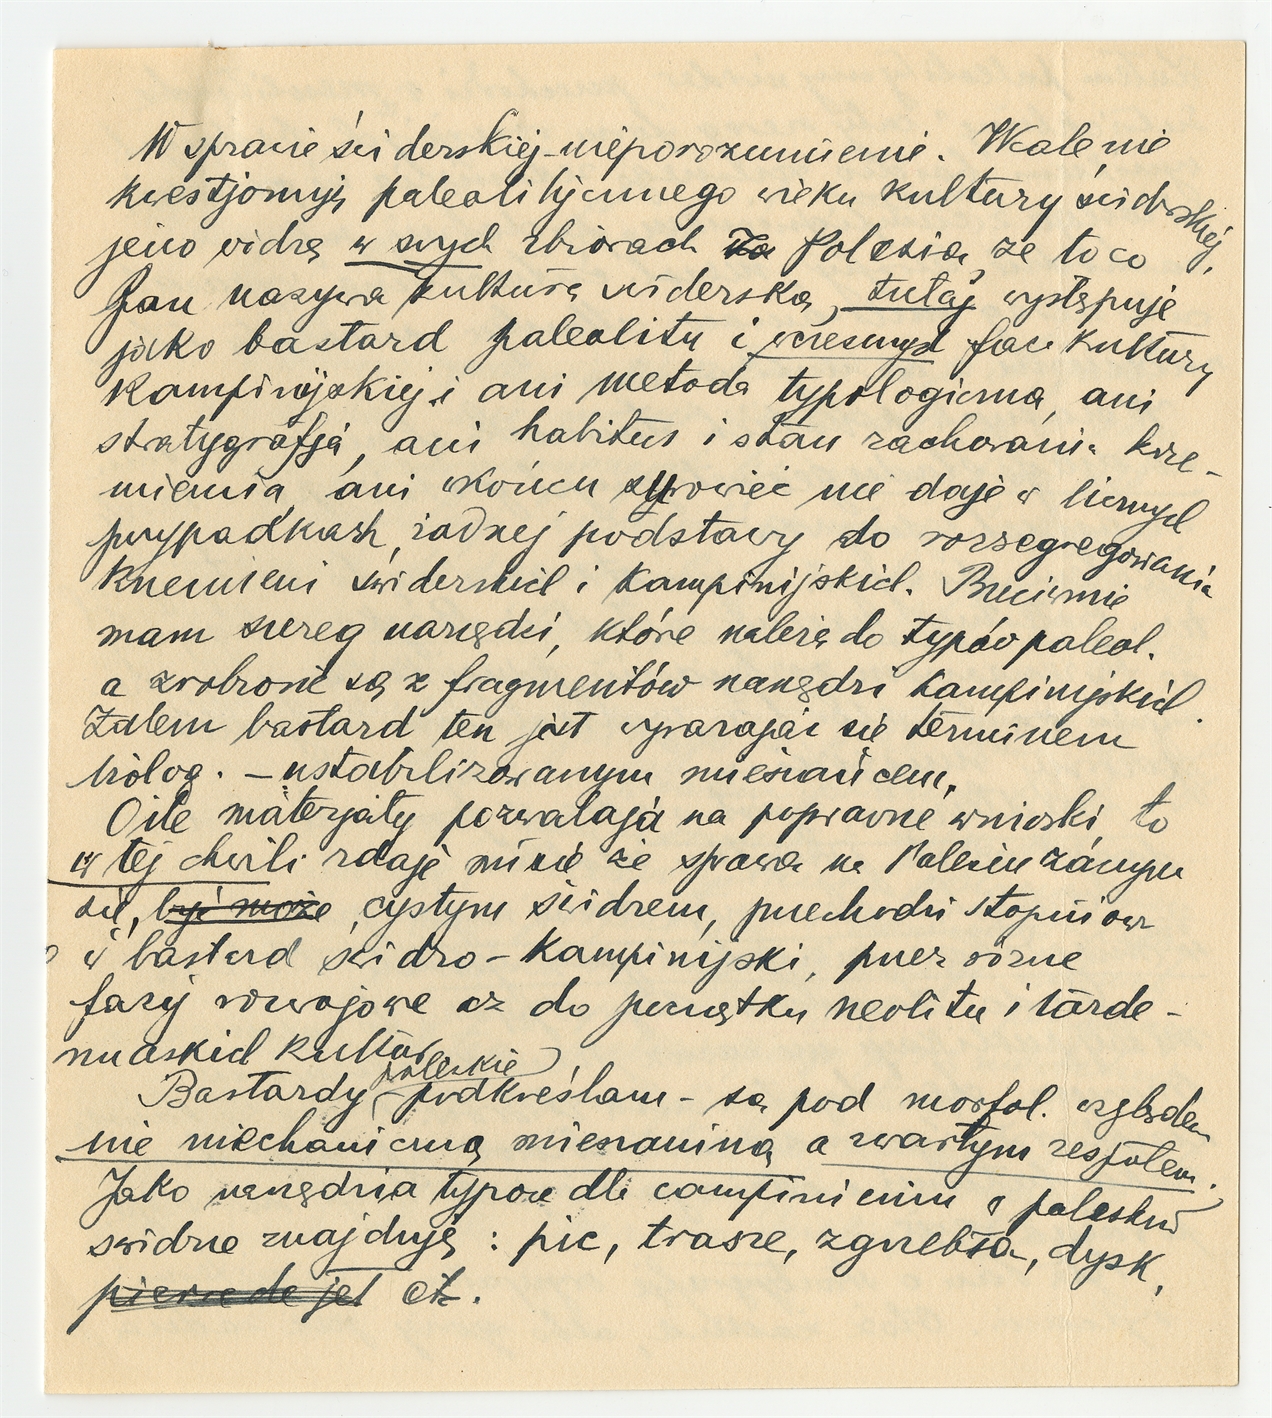 W sprawie świderskiej – nieporozumienie. Wcale nie
kwestjonuję paleolitycznego wieku kultury świderskiej,
jeno widzę w swych zbiorach z Polesia, że to co
Pan nazywa kulturą świderską, tutaj występuje
jako bastard paleolitu i wczesnych faz kultury
kampinijskiej i ani metoda typologiczna, ani
stratygrafja, ani habitus i stan zachowania krze-
mienia, ani wkońcu surowiec nie daje w licznych
przypadkach, żadnej podstawy do rozsegregowania
krzemieni świderskich i kampinijskich. Przeciwnie
mam szereg narzędzi, które należą do typów paleol.
a zrobione są z fragmentów narzędzi kampinijskich.
Zatem bastard ten jest wyrażając się terminem
biolog. – ustabilizowanym mieszańcem.
O ile materjały pozwalają na poprawne wnioski, to
w tej chwili zdaje mi się że sprawa na Polesiu zaczyna
się, być może, czystym świdrem, przechodzi stopniowo
w bastard świdro – kampinijski, przez różne
fazy rozwojowe aż do początku neolitu i tarde-
nuaskich kultur.
Bastardy poleskie – podkreślam – są pod morfol. względem
nie mechaniczną mieszaniną a zwartym zespołem.
Jako narzędzia typowe dla campinienu w poleskim
świdrze znajduję : pic, trasze, zgrzebła, dysk,
etc.